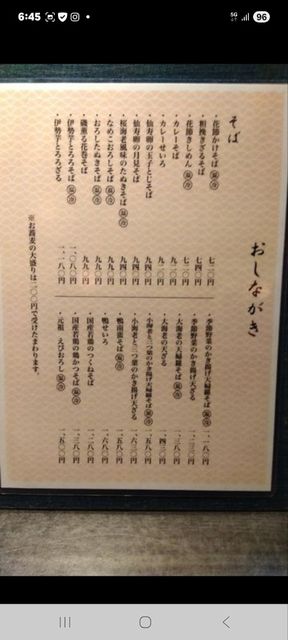 6:45
5G
96
おしながき
そば
・花節かけそば 温 冷
七二〇円
・粗挽ざるそば
七四〇円
・花節きしめん 温 冷
七二〇円
・カレーそば
・カレーせいろ
・仙寿卵の玉子とじそば
九四〇円
・仙寿卵の月見そば
・桜海老風味のたぬきそば 温 冷
九四〇円
・なめこおろしそば 温 冷
九九〇円
・おろしたぬきそば 温 冷
九九〇円
・磯薫る花巻そば
九九〇円
・伊勢芋とろろそば 温 冷
一、〇八〇円
・伊勢芋とろろざる
一、一八〇円
・季節野菜のかき揚げ天婦羅そば 温 冷
一、一八〇円
・季節野菜のかき揚げ天ざる
・大海老の天婦羅そば 温 冷
一、三八〇円
・大海老の天ざる
・小海老と三つ葉のかき揚げ天婦羅そば 温 冷
一、五八〇円
・小海老と三つ葉のかき揚げ天ざる
一、六三〇円
・鴨南蛮そば 温 冷
一、五八〇円
・鴨せいろ
一、六八〇円
・国産若鶏のつくねそば
一、二八〇円
・国産若鶏の鶏かつそば 温 冷
一、三八〇円
・元祖 えびおろし 温 冷
一、五八〇円
※お蕎麦の大盛りは二〇〇円で受けたまわります。